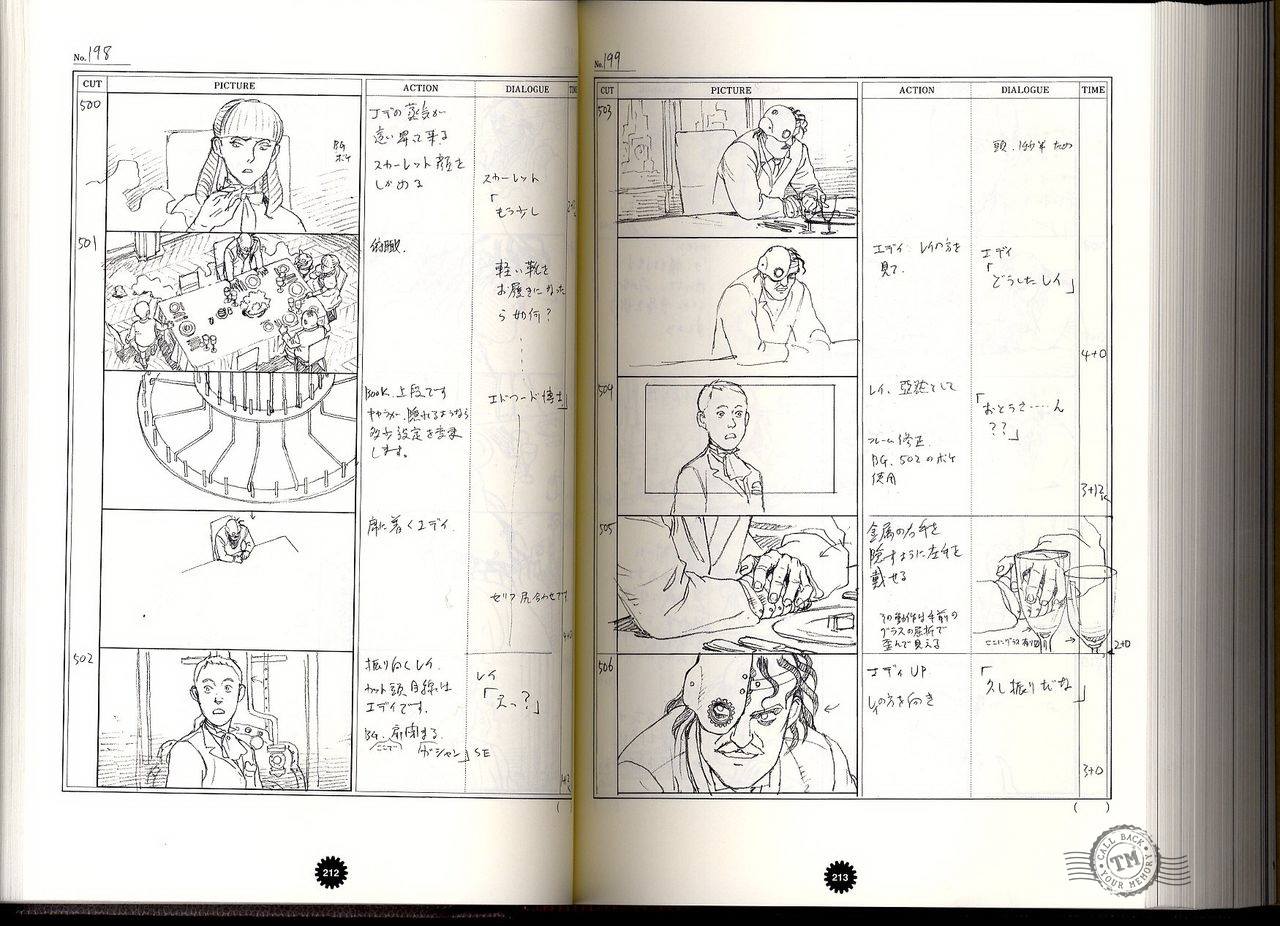 No. 198
CUT
PICTURE
ACTION
DIALOGUE
500
BG
ボケ
エディの蒸気が
漂い昇って来る
スカーレット 顔を
しかめる
スカーレット
「もう少し
501
俯瞰.
軽い靴を
お履きになった
ら如何?
BOOK. 上段です
します。
エドワード博士」
席に着くエディ.
セリフ尻合わせです
502
振り向くレイ.
カット頭 目線は
エディです.
BG. 扉閉まる
ガシャン」SE
レイ
「えっ?」
212
No. 199
CUT
PICTURE
ACTION
DIALOGUE
TIME
503
エディ レイの方を
見て.
エディ
「どうしたレイ」
4+0
504
レイ、唖然として
フレーム修正.
BG. 502のボケ
使用
「おとうさ……ん
??」
3+12
505
金属の右手を
隠すように左手を
載せる
この動作は手前の
グラスの屈折で
歪んで見える
2+0
506
エディ UP
レイの方を向き
「久し振りだな」
3+0
( )
213
CALL BACK
TM
YOUR MEMORY